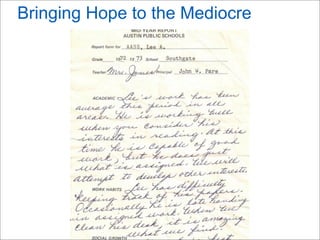 Bringing Hope to the Mediocre
MID YEAR REPORT
AUSTIN PUBLIC SCHOOLS
Report form for AASE, Lee A.
Grade 1972 to 73 School Southgate
Teacher Mrs. Jones Principal John W. Pare
ACADEMIC Lee's work has been
average this period in all
areas. He is working well
when you consider his
interests in reading. At this
time he is capable of good
work, but he does just
what is assigned. We will
attempt to develop other interests.
WORK HABITS Lee has difficulty
keeping track of his papers.
Occasionally he is late handing
in assigned work. When we
clean his desk, it is amazing
what we find.
SOCIAL GROWTH